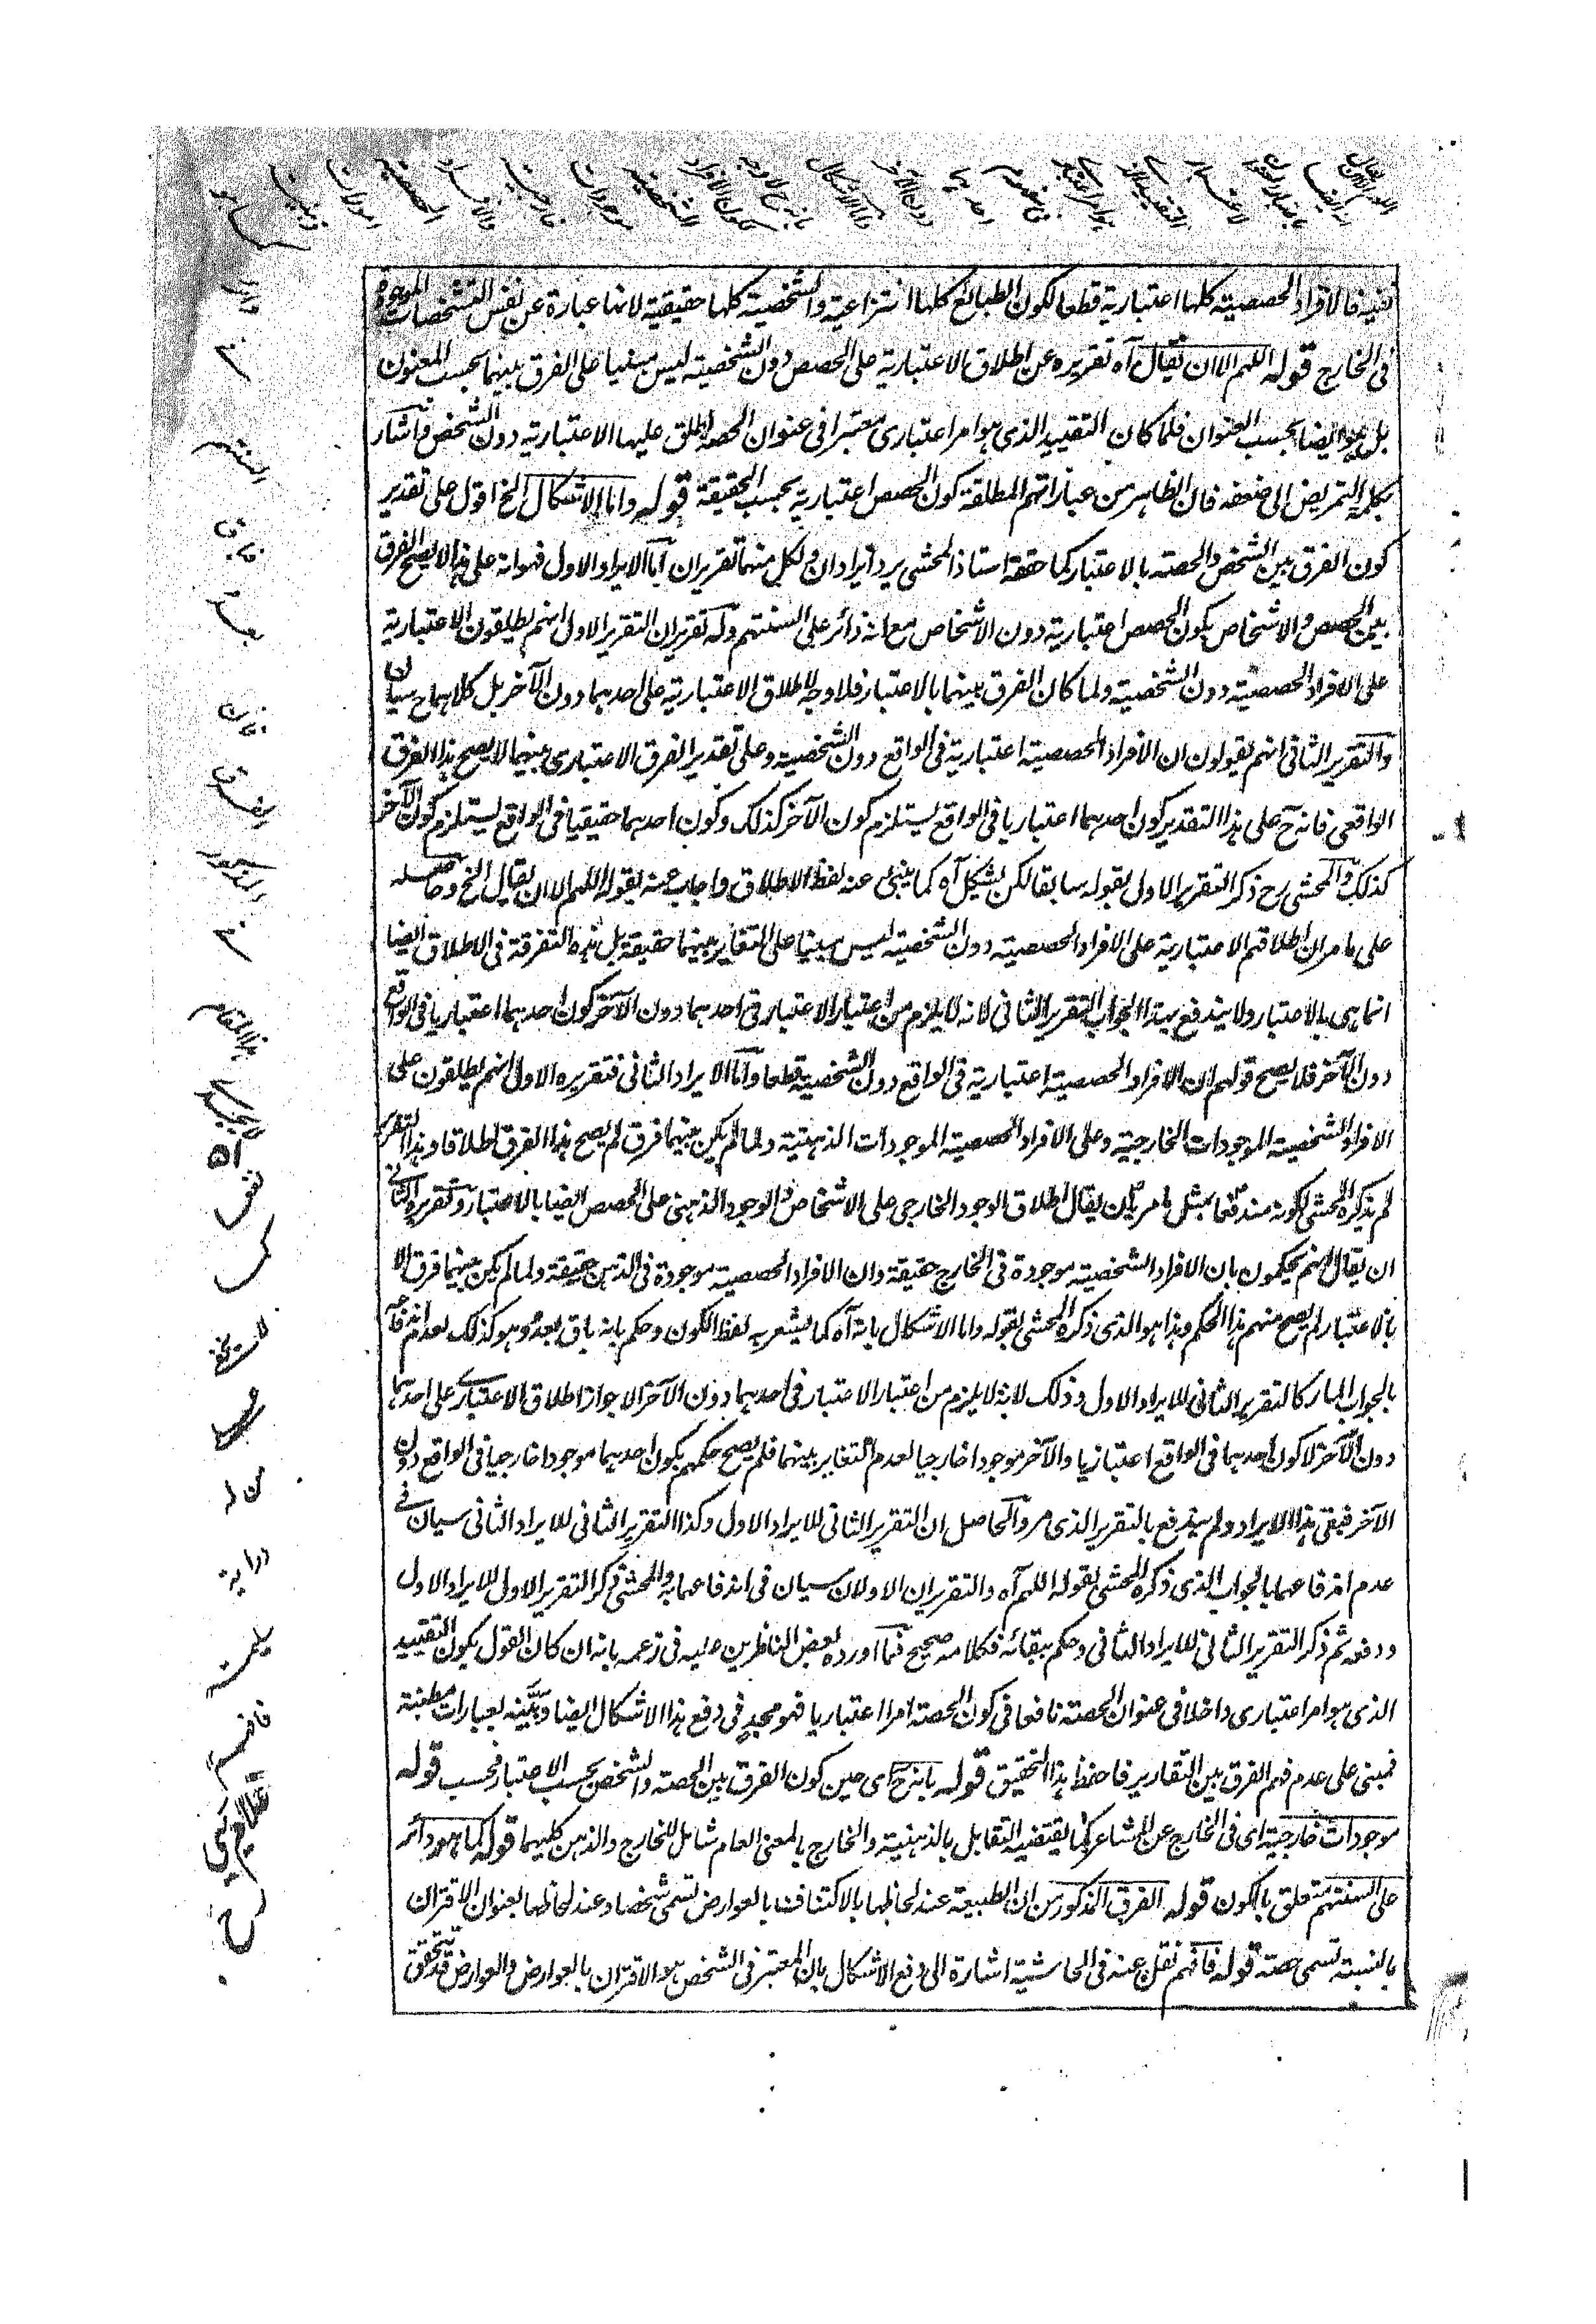 نفيه فالافراد الحصصية كلها اعتبارية قطعا لكون الطبائع كلها انتزاعية والشخصية كلها حقيقية لانها عبارة عن نفس التشخصات الموجودة
فى الخارج قوله اللهم الا ان يقال آه تقريره عن اطلاق الاعتبارية على الحصص دون الشخصية ليس مبنيا على الفرق بينهما بحسب المعنون
بل هو ايضا بحسب العنوان فلما كان التقييد الذى هو امر اعتبارى معتبرا فى عنوان الحصة اطلق عليها الاعتبارية دون الشخص واشار
بكلمة التمريض الى ضعفه فان الظاهر من عباراتهم المطلقة كون الحصص اعتبارية بحسب الحقيقة قوله واما الاشكال الخ اقول على تقدير
كون الفرق بين الشخص والحصة بالاعتبار كما حققه استاذ المحشى يرد ايرادان ولكل منهما تقريران اما الايراد الاول فهو انه على هذا لا يصح الفرق
بين الحصص والاشخاص بكون الحصص اعتبارية دون الاشخاص مع انه دائر على السنتهم وله تقريران التقرير الاول انهم يطلقون الاعتبارية
على الافراد الحصصية دون الشخصية ولما كان الفرق بينهما بالاعتبار فلا وجه لاطلاق الاعتبارية على احدهما دون الآخر بل كلاهما ح سيان
والتقرير الثانى انهم يقولون ان الافراد الحصصية اعتبارية فى الواقع دون الشخصية وعلى تقدير الفرق الاعتبارى بينهما لا يصح هذا الفرق
الواقعى فانه ح على هذا التقدير كون احدهما اعتباريا فى الواقع يستلزم كون الآخر كذلك وكون احدهما حقيقيا فى الواقع يستلزم كون الآخر
كذلك والمحشى رح ذكر التقرير الاول بقوله سابقا لكن يشكل آه كما ينبئ عنه لفظ الاطلاق واجاب عنه بقوله اللهم الا ان يقال الخ وحاصله
على ما مر ان اطلاقهم الاعتبارية على الافراد الحصصية دون الشخصية ليس مبنيا على التغاير بينهما حقيقة بل هذه التفرقة فى الاطلاق ايضا
انما هى بالاعتبار ولا يندفع بهذا الجواب التقرير الثانى لانه لا يلزم من اعتبار الاعتبار فى احدهما دون الآخر كون احدهما اعتباريا فى الواقع
دون الآخر فلا يصح قولهم ان الافراد الحصصية اعتبارية فى الواقع دون الشخصية قطعا واما الايراد الثانى فتقريره الاول انهم يطلقون على
الافراد الشخصية الموجودات الخارجية وعلى الافراد الحصصية الموجودات الذهنية ولما لم يكن بينهما فرق لم يصح هذا الفرق اطلاقا وهذا التقرير
لم يذكره المحشى لكونه مندفعا بمثل ما مر بان يقال اطلاق الوجود الخارجى على الاشخاص والوجود الذهنى على الحصص ايضا بالاعتبار وتقريره الثانى
ان يقال انهم يحكمون بان الافراد الشخصية موجودة فى الخارج حقيقة وان الافراد الحصصية موجودة فى الذهن حقيقة ولما لم يكن بينهما فرق الا
بالاعتبار لم يصح منهم هذا الحكم وهذا هو الذى ذكره المحشى بقوله واما الاشكال بانه آه كما يشعر به لفظ الكون وحكم بانه باق بعد وهو كذلك لعدم اندفاعه
بالجواب المار كالتقرير الثانى للايراد الاول وذلك لانه لا يلزم من اعتبار الاعتبار فى احدهما دون الآخر الا جواز اطلاق الاعتبارى على احدهما
دون الآخر لا كون احدهما فى الواقع اعتباريا والآخر موجودا خارجيا لعدم التغاير بينهما فلم يصح حكمهم بكون احدهما موجودا خارجيا فى الواقع دون
الآخر فبقى هذا الايراد ولم يندفع بالتقرير الذى مر والحاصل ان التقرير الثانى للايراد الاول وكذا التقرير الثانى للايراد الثانى سيان فى
عدم اندفاعهما بالجواب الذى ذكره المحشى بقوله اللهم آه والتقريران الاولان سيان فى اندفاعهما به والمحشى ذكر التقرير الاول للايراد الاول
ودفعه ثم ذكر التقرير الثانى للايراد الثانى وحكم ببقائه فكلامه صحيح فما اورده بعض الناظرين عليه فى زعمه بانه ان كان القول بكون التقييد
الذى هو امر اعتبارى داخلا فى عنوان الحصة نافعا فى كون الحصة امرا اعتباريا فهو مجد فى دفع هذا الاشكال ايضا وبينه بعبارات مطنبة
فمبنى على عدم فهم الفرق بين التقارير فاحفظ هذا التحقيق قوله بانه ح اى حين كون الفرق بين الحصة والشخص بحسب الاعتبار فحسب قوله
موجودات خارجية اى فى الخارج عن المشاعر كما يقتضيه التقابل بالذهنية والخارج بالمعنى العام شامل للخارج والذهن كليهما قوله كما هو دائر
على السنتهم متعلق بالكون قوله الفرق المذكور من ان الطبيعة عند لحاظها بالاكتناف بالعوارض تسمى شخصا وعند لحاظها بعنوان الاقتران
بالنسبة تسمى حصة قوله فافهم نقل عنه فى الحاشية اشارة الى دفع الاشكال بان المعتبر فى الشخص هو الاقتران بالعوارض والعوارض قد تتحقق